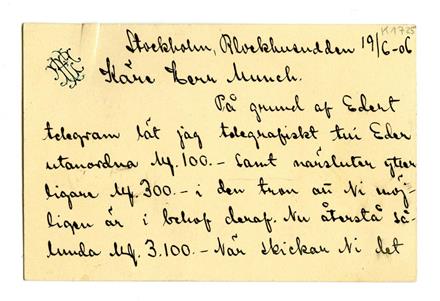 K 1735
Stockholm, Blockhusudden 19/6-06
Käre Herr Munch.
På grund af Edert
telegram lät jag telegrafiskt till Eder
utanordna M. 100.- samt närsluter ytter
ligare M. 300.- i den tron att Ni möj-
ligen är i behof deraf. Nu återstå så-
lunda M. 3.100.- När skickar Ni det